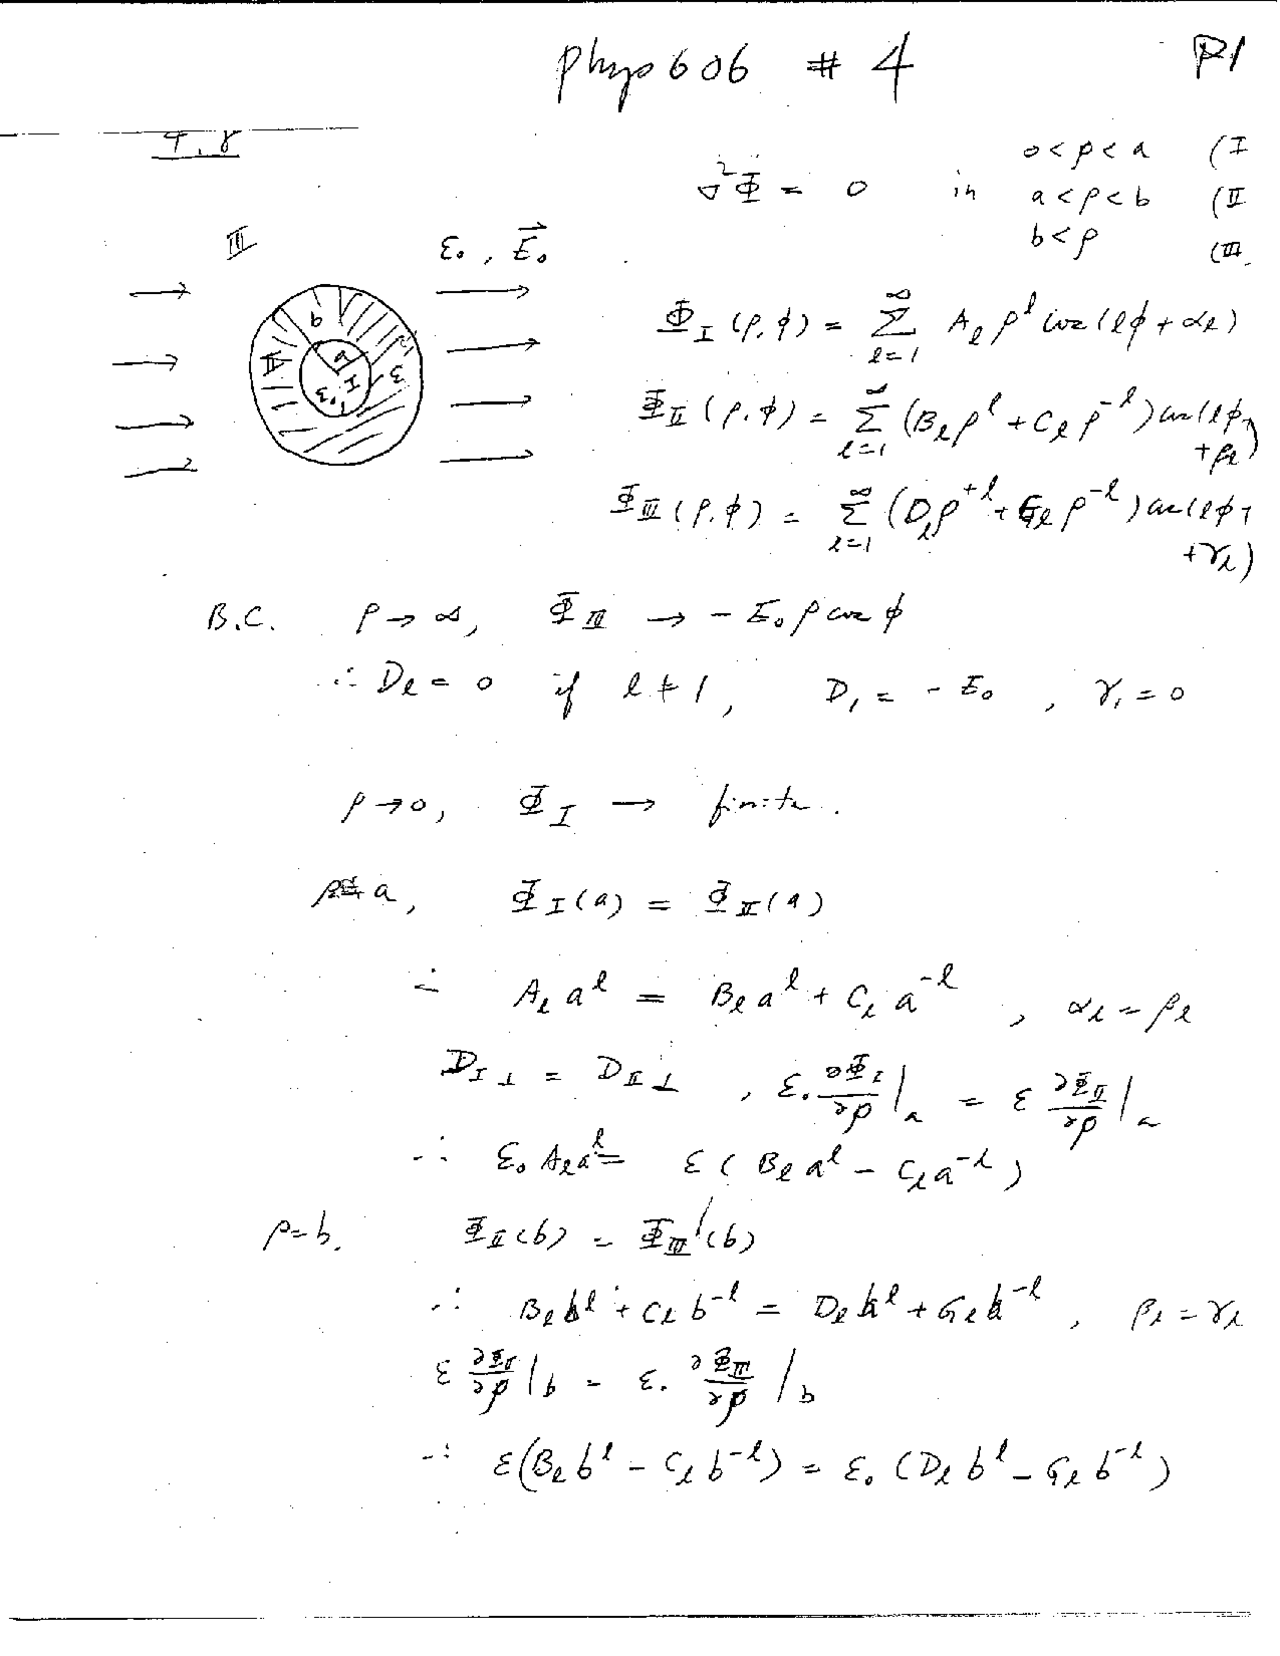 Phys 606 # 4 P1
4.8
∇²Φ = 0 in 0<ρ<a (I
a<ρ<b (II
b<ρ (III
III ε₀, E⃗₀
b
II a ε
ε₀ I
Φ_I (ρ,φ) = Σ_{l=1}^∞ A_l ρ^l cos(lφ + α_l)
Φ_II (ρ,φ) = Σ_{l=1}^∞ (B_l ρ^l + C_l ρ^{-l}) cos(lφ + β_l)
Φ_III (ρ,φ) = Σ_{l=1}^∞ (D_l ρ^{+l} + G_l ρ^{-l}) cos(lφ + γ_l)
B.C. ρ→∞, Φ_III → -E₀ρ cos φ
∴ D_l = 0 if l ≠ 1, D₁ = -E₀, γ₁ = 0
ρ→0, Φ_I → finite.
ρ = a, Φ_I(a) = Φ_II(a)
∴ A_l a^l = B_l a^l + C_l a^{-l}, α_l = β_l
D_{I⊥} = D_{II⊥}, ε₀ ∂Φ_I/∂ρ |_a = ε ∂Φ_II/∂ρ |_a
∴ ε₀ A_l a^l = ε ( B_l a^l - C_l a^{-l} )
ρ=b. Φ_II(b) = Φ_III(b)
∴ B_l b^l + C_l b^{-l} = D_l b^l + G_l b^{-l}, β_l = γ_l
ε ∂Φ_II/∂ρ |_b = ε₀ ∂Φ_III/∂ρ |_b
∴ ε(B_l b^l - C_l b^{-l}) = ε₀ (D_l b^l - G_l b^{-l})